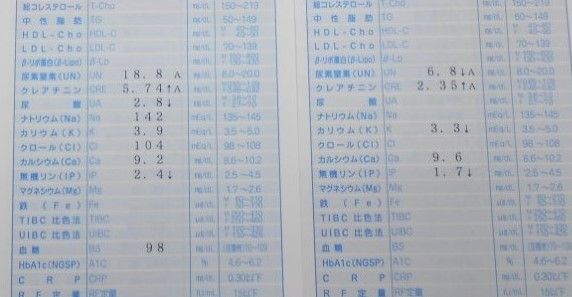 総コレステロール T-Cho mg/dL 150〜219
中性脂肪 TG mg/dL 50〜149
HDL-Cho HDL-C mg/dL
LDL-Cho LDL-C mg/dL 70〜139
β-リポ蛋白(β-Lipo) β-Lp mg/dL
尿素窒素(UN) 18.8 A UN mg/dL 8.0〜20.0
クレアチニン 5.74↑A CRE mg/dL
尿酸 2.8↓ UA mg/dL
ナトリウム(Na) 142 Na mEq/L 135〜145
カリウム(K) 3.9 K mEq/L 3.5〜5.0
クロール(Cl) 104 Cl mEq/L 98〜108
カルシウム(Ca) 9.2 Ca mg/dL 8.6〜10.2
無機リン(IP) 2.4↓ IP mg/dL 2.5〜4.5
マグネシウム(Mg) Mg mg/dL 1.7〜2.6
鉄(Fe) Fe
TIBC 比色法 TIBC
UIBC 比色法 UIBC
血糖 98 BS mg/dL
HbA1c(NGSP) A1C % 4.6〜6.2
CRP CRP mg/dL 0.30以下
RF定量 RF定量 IU/mL 15以下
総コレステロール T-Cho mg/dL 150〜219
中性脂肪 TG mg/dL 50〜149
HDL-Cho HDL-C mg/dL
LDL-Cho LDL-C mg/dL 70〜139
β-リポ蛋白(β-Lipo) β-Lp mg/dL
尿素窒素(UN) UN 6.8↓A mg/dL 8.0〜20.0
クレアチニン CRE 2.35↑A mg/dL
尿酸 UA mg/dL
ナトリウム(Na) Na mEq/L 135〜145
カリウム(K) K 3.3↓ mEq/L 3.5〜5.0
クロール(Cl) Cl mEq/L 98〜108
カルシウム(Ca) Ca 9.6 mg/dL 8.6〜10.2
無機リン(IP) IP 1.7↓ mg/dL 2.5〜4.5
マグネシウム(Mg) Mg mg/dL 1.7〜2.6
鉄(Fe) Fe
TIBC 比色法 TIBC
UIBC 比色法 UIBC
血糖 BS mg/dL
HbA1c(NGSP) A1C % 4.6〜6.2
CRP CRP mg/dL 0.30以下
RF定量 RF定量 IU/mL 15以下